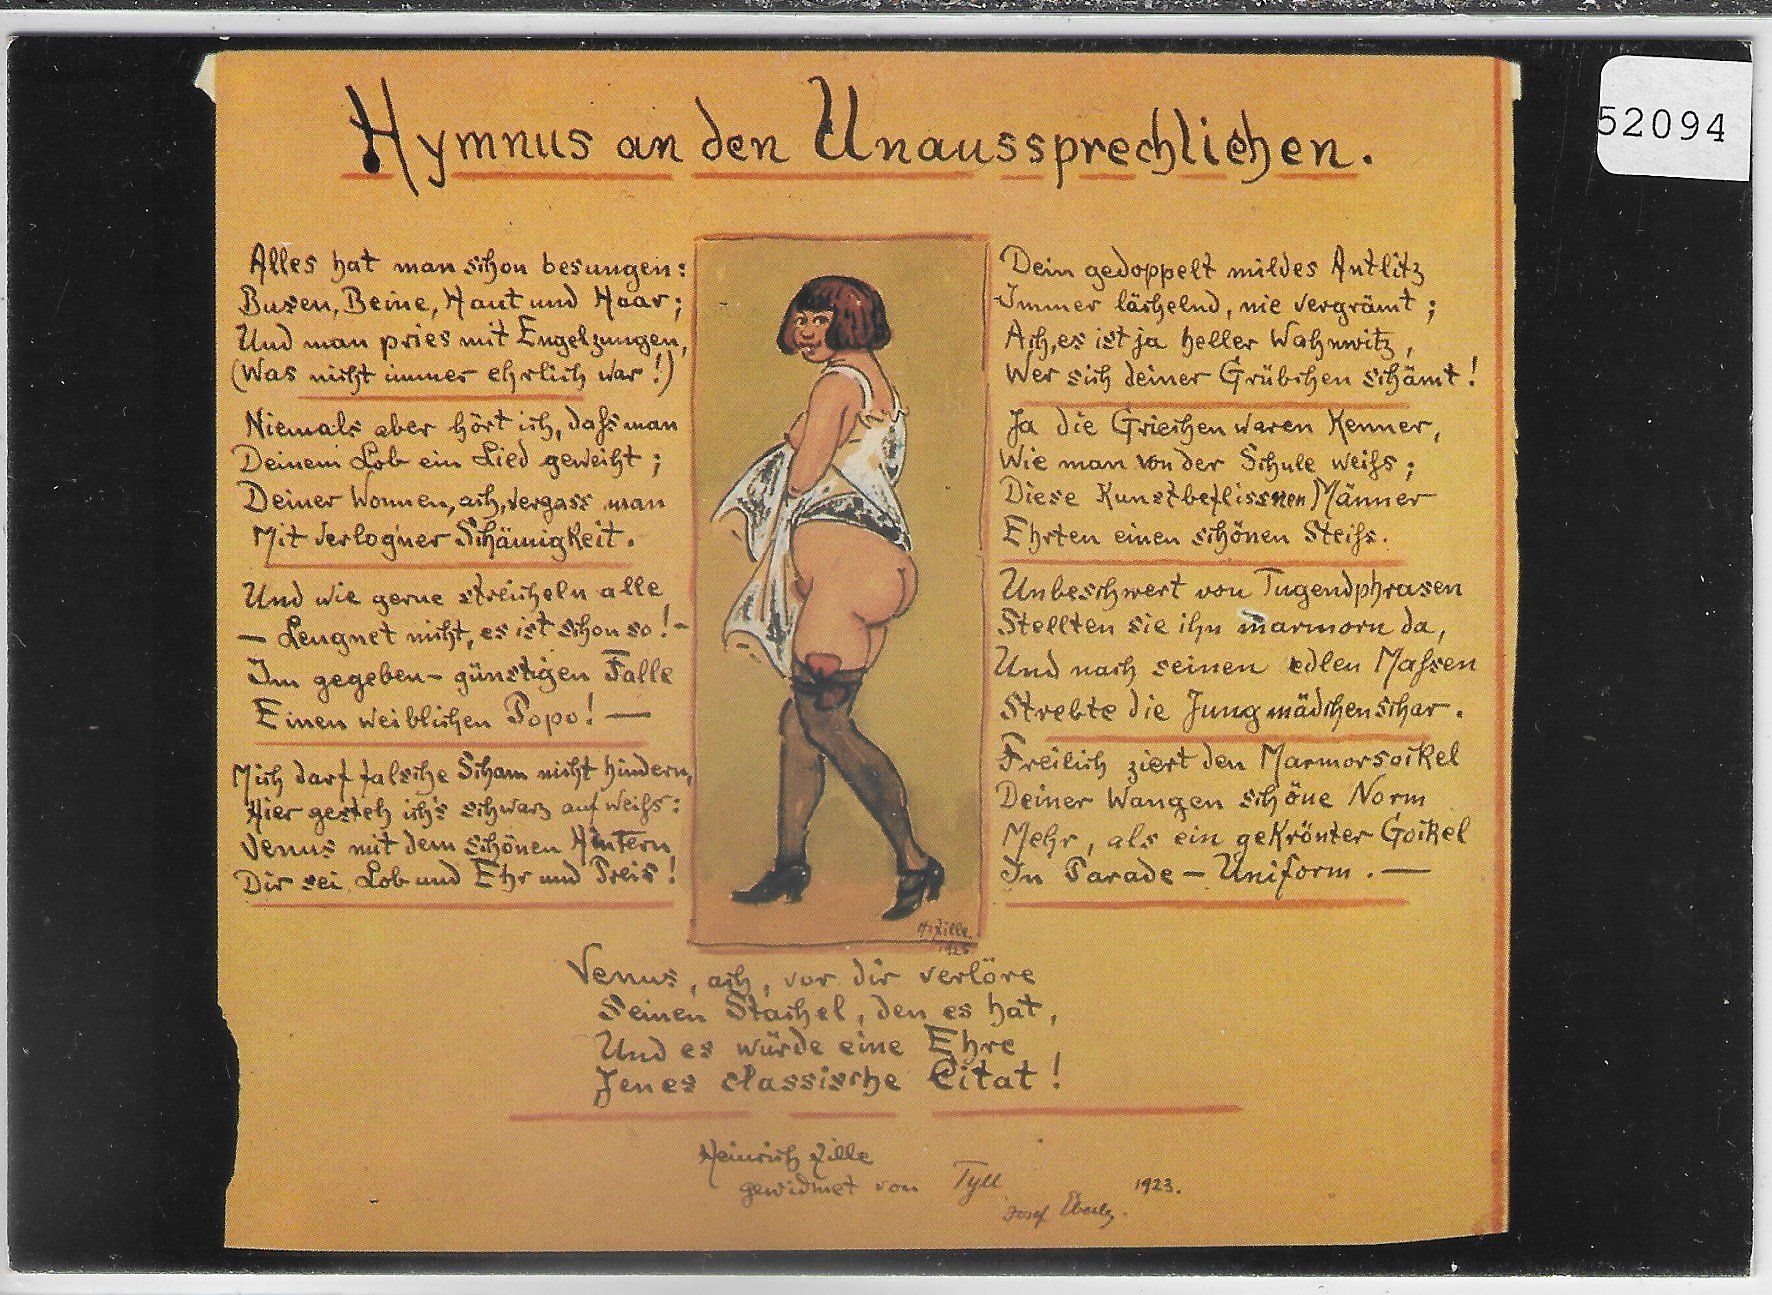 Hymnus an den Unaussprechlichen.
52094
Alles hat man schon besungen:
Busen, Beine, Haut und Haar;
Und man pries mit Engelzungen,
(Was nicht immer ehrlich war!)
Niemals aber hört ich, dass man
Deinem Lob ein Lied geweiht;
Deiner Wonnen, ach, vergass man
Mit verlog'ner Schämigkeit.
Und wie gerne streicheln alle
– Leugnet nicht, es ist schon so! –
Im gegeben-günstigen Falle
Einen weiblichen Popo! —
Mich darf falsche Scham nicht hindern,
Hier gesteh ich's schwarz auf weiß:
Venus mit dem schönen Hintern
Dir sei Lob und Ehr und Preis!
Dein gedoppelt mildes Antlitz
Immer lächelnd, nie vergrämt;
Ach, es ist ja heller Wahnwitz,
Wer sich deiner Grübchen schämt!
Ja die Griechen waren Kenner,
Wie man von der Schule weiß;
Diese Kunstbeflissnen Männer
Ehrten einen schönen Steiß.
Unbeschwert von Tugendphrasen
Stellten sie ihn marmorn da,
Und nach seinen edlen Maßen
Strebte die Jungmädchenschar.
Freilich ziert den Marmorsockel
Deiner Wangen schöne Norm
Mehr, als ein gekrönter Gockel
In Parade-Uniform. —
H. Zille.
1925
Venus, ach, vor dir verlöre
Seinen Stachel, den es hat,
Und es würde eine Ehre
Jenes classische Citat!
Heinrich Zille
gewidmet von Tyll 1923.
Josef Eberle.